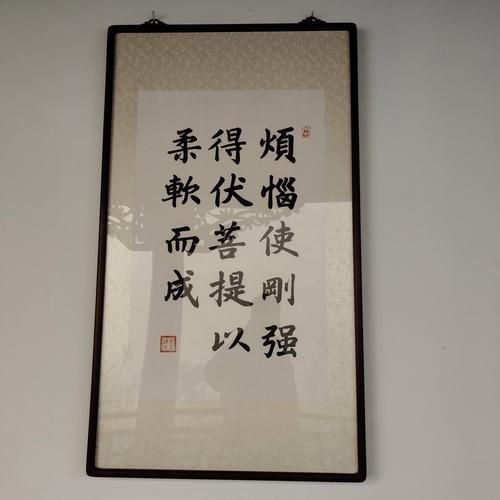 煩惱使剛强
得伏菩提以
柔軟而成